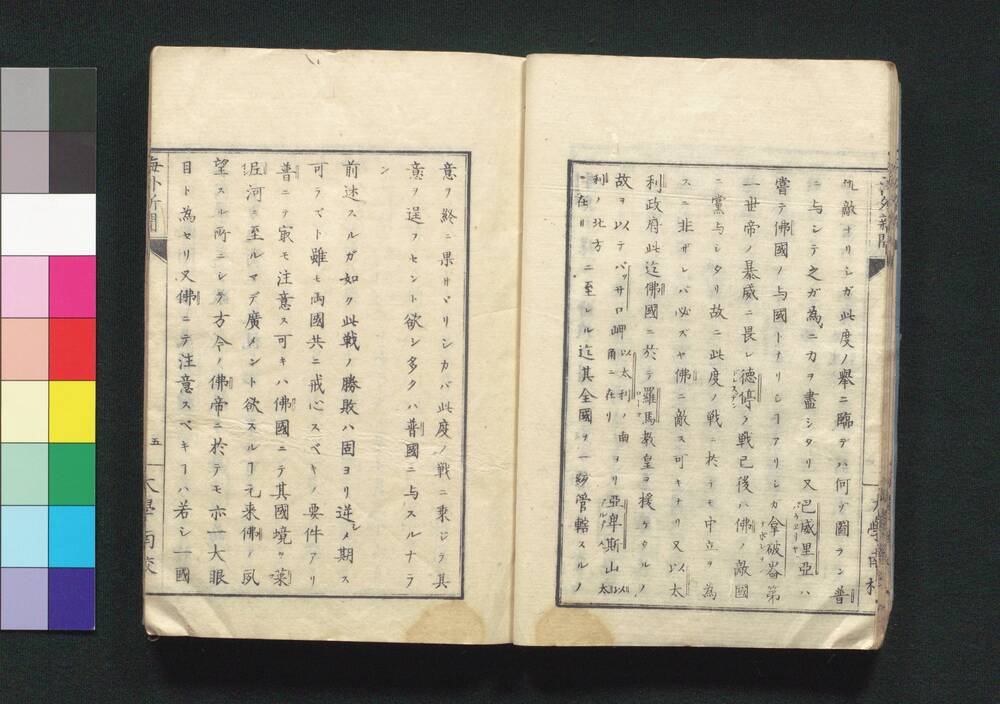 仇敵ナリシガ此度ノ擧ニ臨テハ何ゾ圖ラン普
ニ与シテ之ガ為ニ力ヲ盡シタリ又巴威里亞ハ
嘗テ佛國ノ与國トナリシヿアリシカ拿破崙第
一世帝ノ暴威ニ畏レ德停ノ戦已後ハ佛ノ敵國
ドレスデン
ニ黨与シタリ故ニ此度ノ戦ニ於テモ中立ヲ為
スニ非ザレバ必ズヤ佛ニ敵ス可キナリ又以太
利政府此迄佛國ニ於テ羅馬教皇ヲ援ケタルノ
ローマ
故ヲ以テパッサロ岬以太利ノ南角ニ在リヨリ亞卑斯山以太
利ノ北方ニ在リニ至ル迄其全國ヲ一統管轄スルノ
意ヲ終ニ果サヾリシカバ此度ノ戦ニ乗ジテ其
意ヲ逞フセント欲シ多クハ普國ニ与スルナラ
ン
前述スルガ如ク此戦ノ勝敗ハ固ヨリ逆シメ期ス
可ラズト雖モ両國共ニ戒心スベキノ要件アリ
普ニテ㝡モ注意ス可キハ佛國ニテ其國境ヲ萊
尼河ニ至ルマデ廣メント欲スルヿ元來佛ノ夙
望スル所ニシテ方今ノ佛帝ニ於テモ亦一大眼
目ト為セリ又佛ニテ注意スベキヿハ若シ一國
海外新聞
五
大學南校